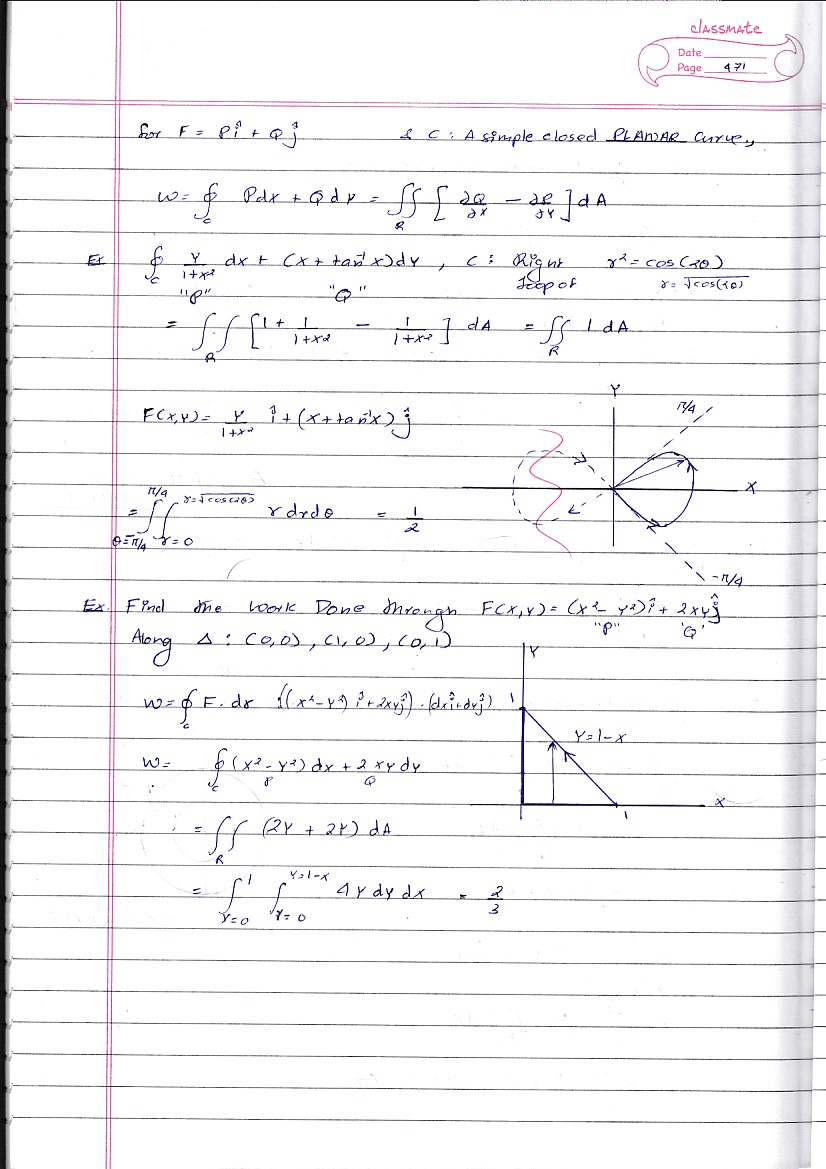 classmate
Date
Page 471
for F = Pî + Qĵ & C : A simple closed PLANAR Curve,
W = ∮_C Pdx + Qdy = ∬_R [ ∂Q/∂x − ∂P/∂y ] dA
Ex ∮_C y/(1+x²) dx + (x + tan⁻¹x)dy , C : Right Loop of r² = cos(2θ)
"P" "Q" r = √cos(2θ)
= ∬_R [ 1 + 1/(1+x²) − 1/(1+x²) ] dA = ∬_R 1 dA
F(x,y) = y/(1+x²) î + (x + tan⁻¹x) ĵ
Y
π/4
X
-π/4
= ∫_{θ=-π/4}^{π/4} ∫_{r=0}^{r=√cos(2θ)} r dr dθ = 1/2
Ex. Find the Work Done through F(x,y) = (x² − y²)î + 2xyĵ
"P" 'Q'
Along Δ : (0,0) , (1,0) , (0,1)
W = ∮_C F . dr {(x² − y²) î + 2xyĵ} . (dxî + dyĵ)
Y
1
Y = 1 − x
X
1
W = ∮_C (x² − y²) dx + 2 xy dy
P Q
= ∬_R (2y + 2y) dA
= ∫_{x=0}^{1} ∫_{y=0}^{y=1−x} 4y dy dx = 2/3